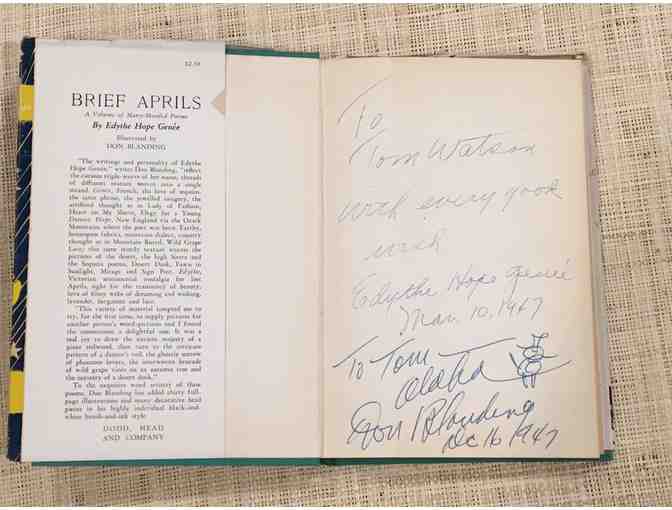 $2.50
BRIEF APRILS
A Volume of Many-Mooded Poems
By Edythe Hope Genée
Illustrated by
DON BLANDING
"The writings and personality of Edythe
Hope Genée," writes Don Blanding, "reflect
the curious triple-weave of her name, threads
of different texture woven into a single
strand. Genée, French, the love of sequins,
the satin phrase, the jewelled imagery, the
artificed thought as in Lady of Fashion,
Heart on My Sleeve, Elegy for a Young
Dancer. Hope, New England via the Ozark
Mountains where the poet was born. Earthy,
homespun fabrics, mountain dialect, country
thought as in Mountain Burial, Wild Grape
Lace; this same sturdy texture weaves the
pictures of the desert, the high Sierra and
the Sequoia poems, Desert Dusk, Fawn in
Sunlight, Mirage and Sign Post. Edythe,
Victorian sentimental nostalgia for lost
Aprils, regret for the transiency of beauty,
love of filmy webs of dreaming and wishing,
lavender, bergamot and lace.
"This variety of material tempted me to
try, for the first time, to supply pictures for
another person's word-pictures and I found
the association a delightful one. It was a
real joy to draw the ancient majesty of a
giant redwood, then turn to the intricate
pattern of a dancer's veil, the ghostly sorrow
of phantom lovers, the interwoven brocade
of wild grape vines on an autumn tree and
the mystery of a desert dusk."
To the exquisite word artistry of these
poems, Don Blanding has added thirty full-
page illustrations and many decorative head
pieces in his highly individual black-and-
white brush-and-ink style.
DODD, MEAD
AND COMPANY
To
Tom Watson
with every good
wish
Edythe Hope Genée
Mar. 10, 1947
To Tom
Aloha
Don Blanding
Dec 16 1947